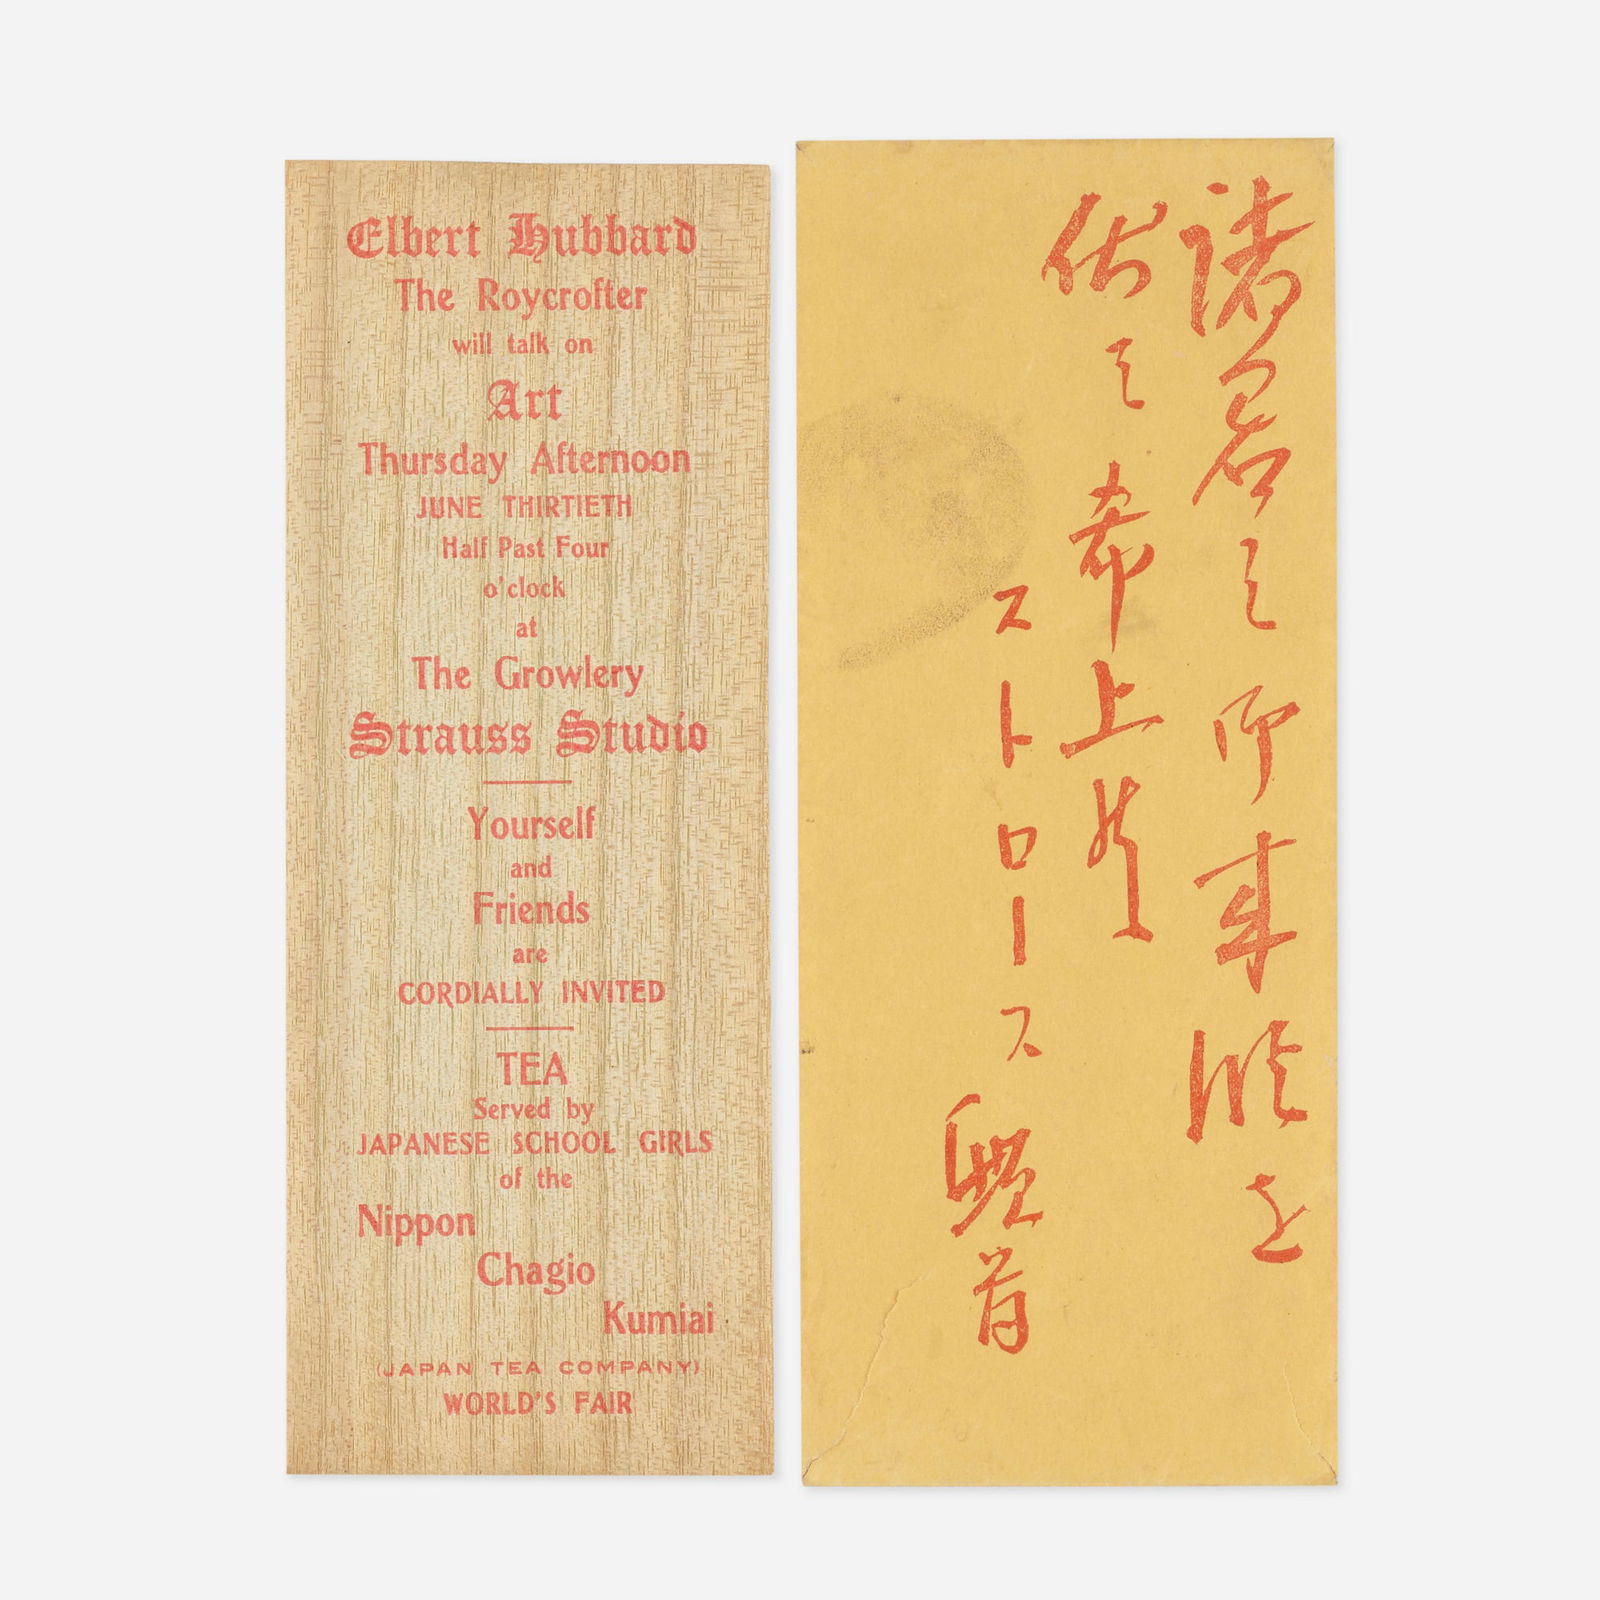 Elbert Hubbard
The Roycrofter
will talk on
Art
Thursday Afternoon
JUNE THIRTIETH
Half Past Four
o'clock
at
The Growlery
Strauss Studio
Yourself
and
Friends
are
CORDIALLY INVITED
TEA
Served by
JAPANESE SCHOOL GIRLS
of the
Nippon
Chagio
Kumiai
(JAPAN TEA COMPANY)
WORLD'S FAIR
諸君之御来臨を
伏て希上候
ストロース
頓首